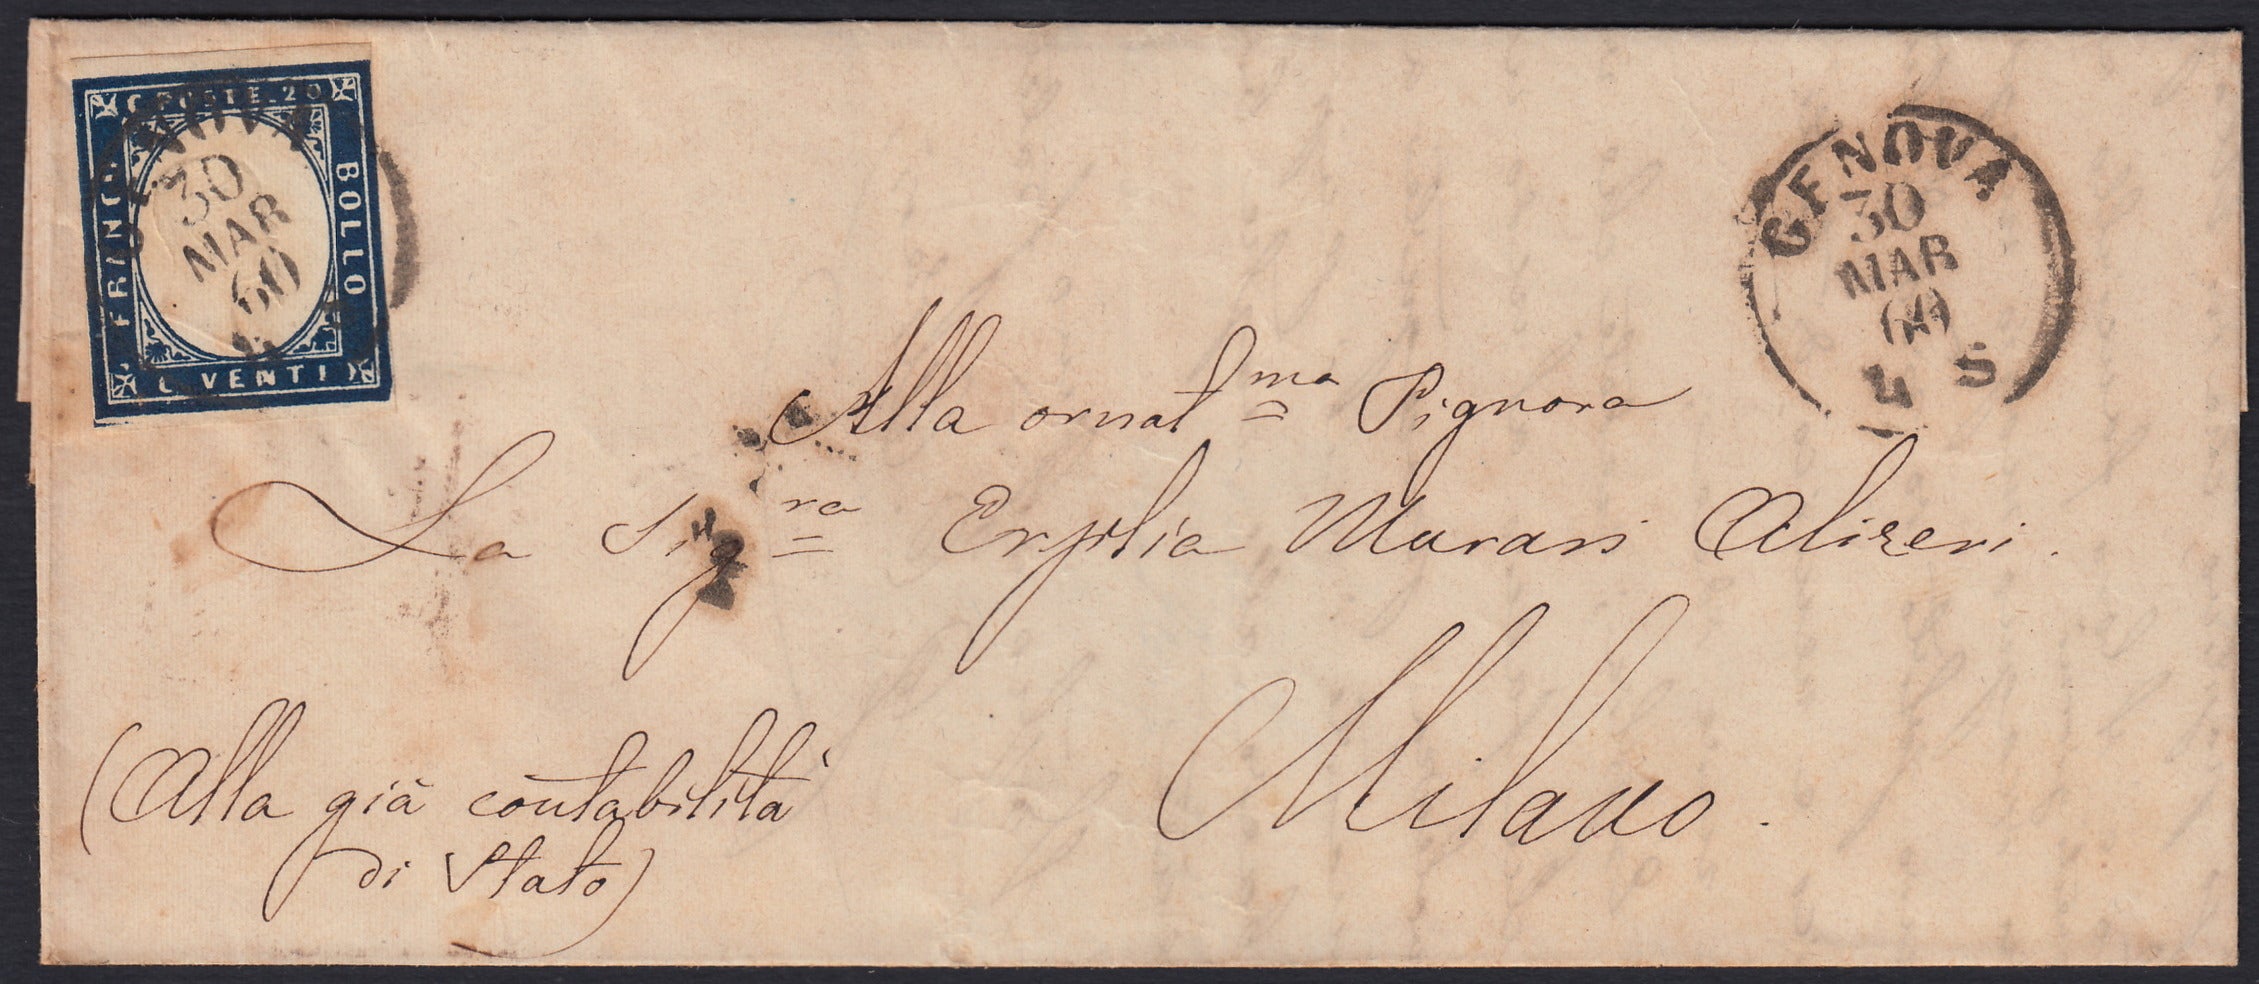 C. POSTE. 20
FRANCO
BOLLO
C. VENTI
GENOVA
30
MAR
60
4 S
GENOVA
30
MAR
60
4 S
Alla ornat.ma Signora
La Sig.ra Ersilia Murari Alizeri.
Milano.
(Alla già contabilità
di Stato)